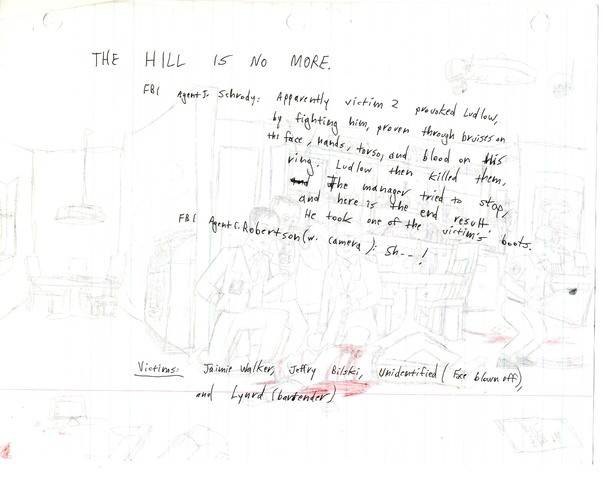 THE HILL IS NO MORE.
FBI Agent J. Schrody: Apparently victim 2 provoked Ludlow,
by fighting him, proven through bruises on
the face, hands, torso, and blood on his
ring. Ludlow then killed them,
The manager tried to stop,
and here is the end result.
He took one of the victim's boots.
FBI Agent C. Robertson (w. camera): Sh--!
Victims: Jaimie Walker, Jeffry Bilski, Unidentified (Face blown off),
and Lynrd (bartender)